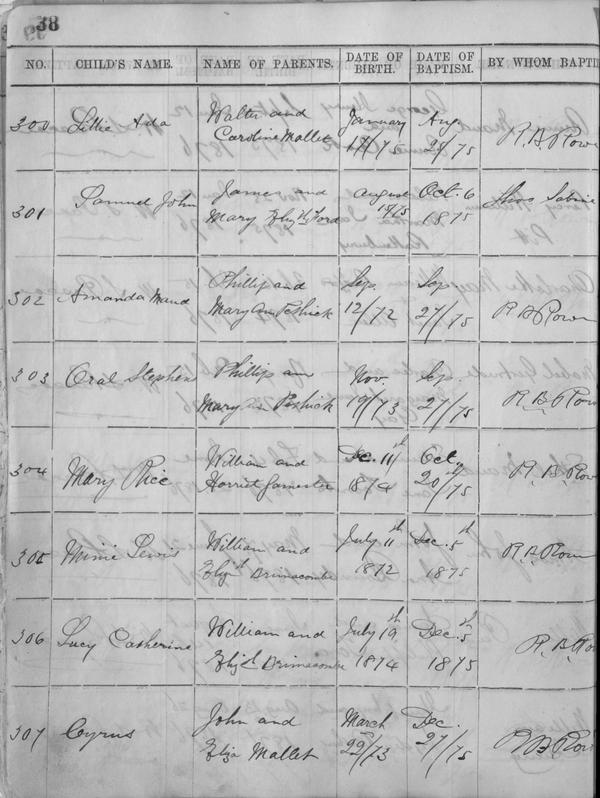 38
NO. CHILD'S NAME. NAME OF PARENTS. DATE OF BIRTH. DATE OF BAPTISM. BY WHOM BAPTI
300 Lillie Ada Walter and Caroline Mallet January 17/75 Aug. 25/75 R. B. Rowe
301 Samuel John James and Mary Elizth Ford August 15/75 Oct. 6 1875 Thos Sabine
302 Amanda Maud Phillip and Mary Ann Pethick Sep. 12/72 Sep. 27/75 R B Rowe
303 Oral Stephen Phillip an Mary Ann Pethick Nov. 19/73 Sep. 27/75 R B Rowe
304 Mary Rice William and Harriet Dec. 11st 1874 Oct. 20/75 R. B. Row
305 Minie Lewis William and Elizt Brimacombe July 11th 1872 Dec. 5th 1875 R. B. Row
306 Lucy Catherine William and Elizt Brimacombe July 19th 1874 Dec. 5th 1875 R. B. Ro
307 Cyrus John and Eliza Mallet March 22/73 Dec. 27/75 R B Row